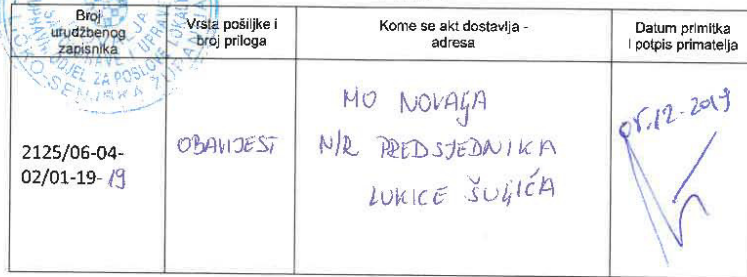 Broj
urudžbenog
zapisnika
Vrsta pošiljke i
broj priloga
Kome se akt dostavlja -
adresa
Datum primitka
i potpis primatelja
2125/06-04-
02/01-19-19
OBAVIJEST
MO NOVALJA
N/R PREDSJEDNIKA
LUKICE ŠULJIĆA
05.12.2019
ODJEL ZA POSLOVE LOKALNE
LIČKO-SENJSKA ŽUPANIJA